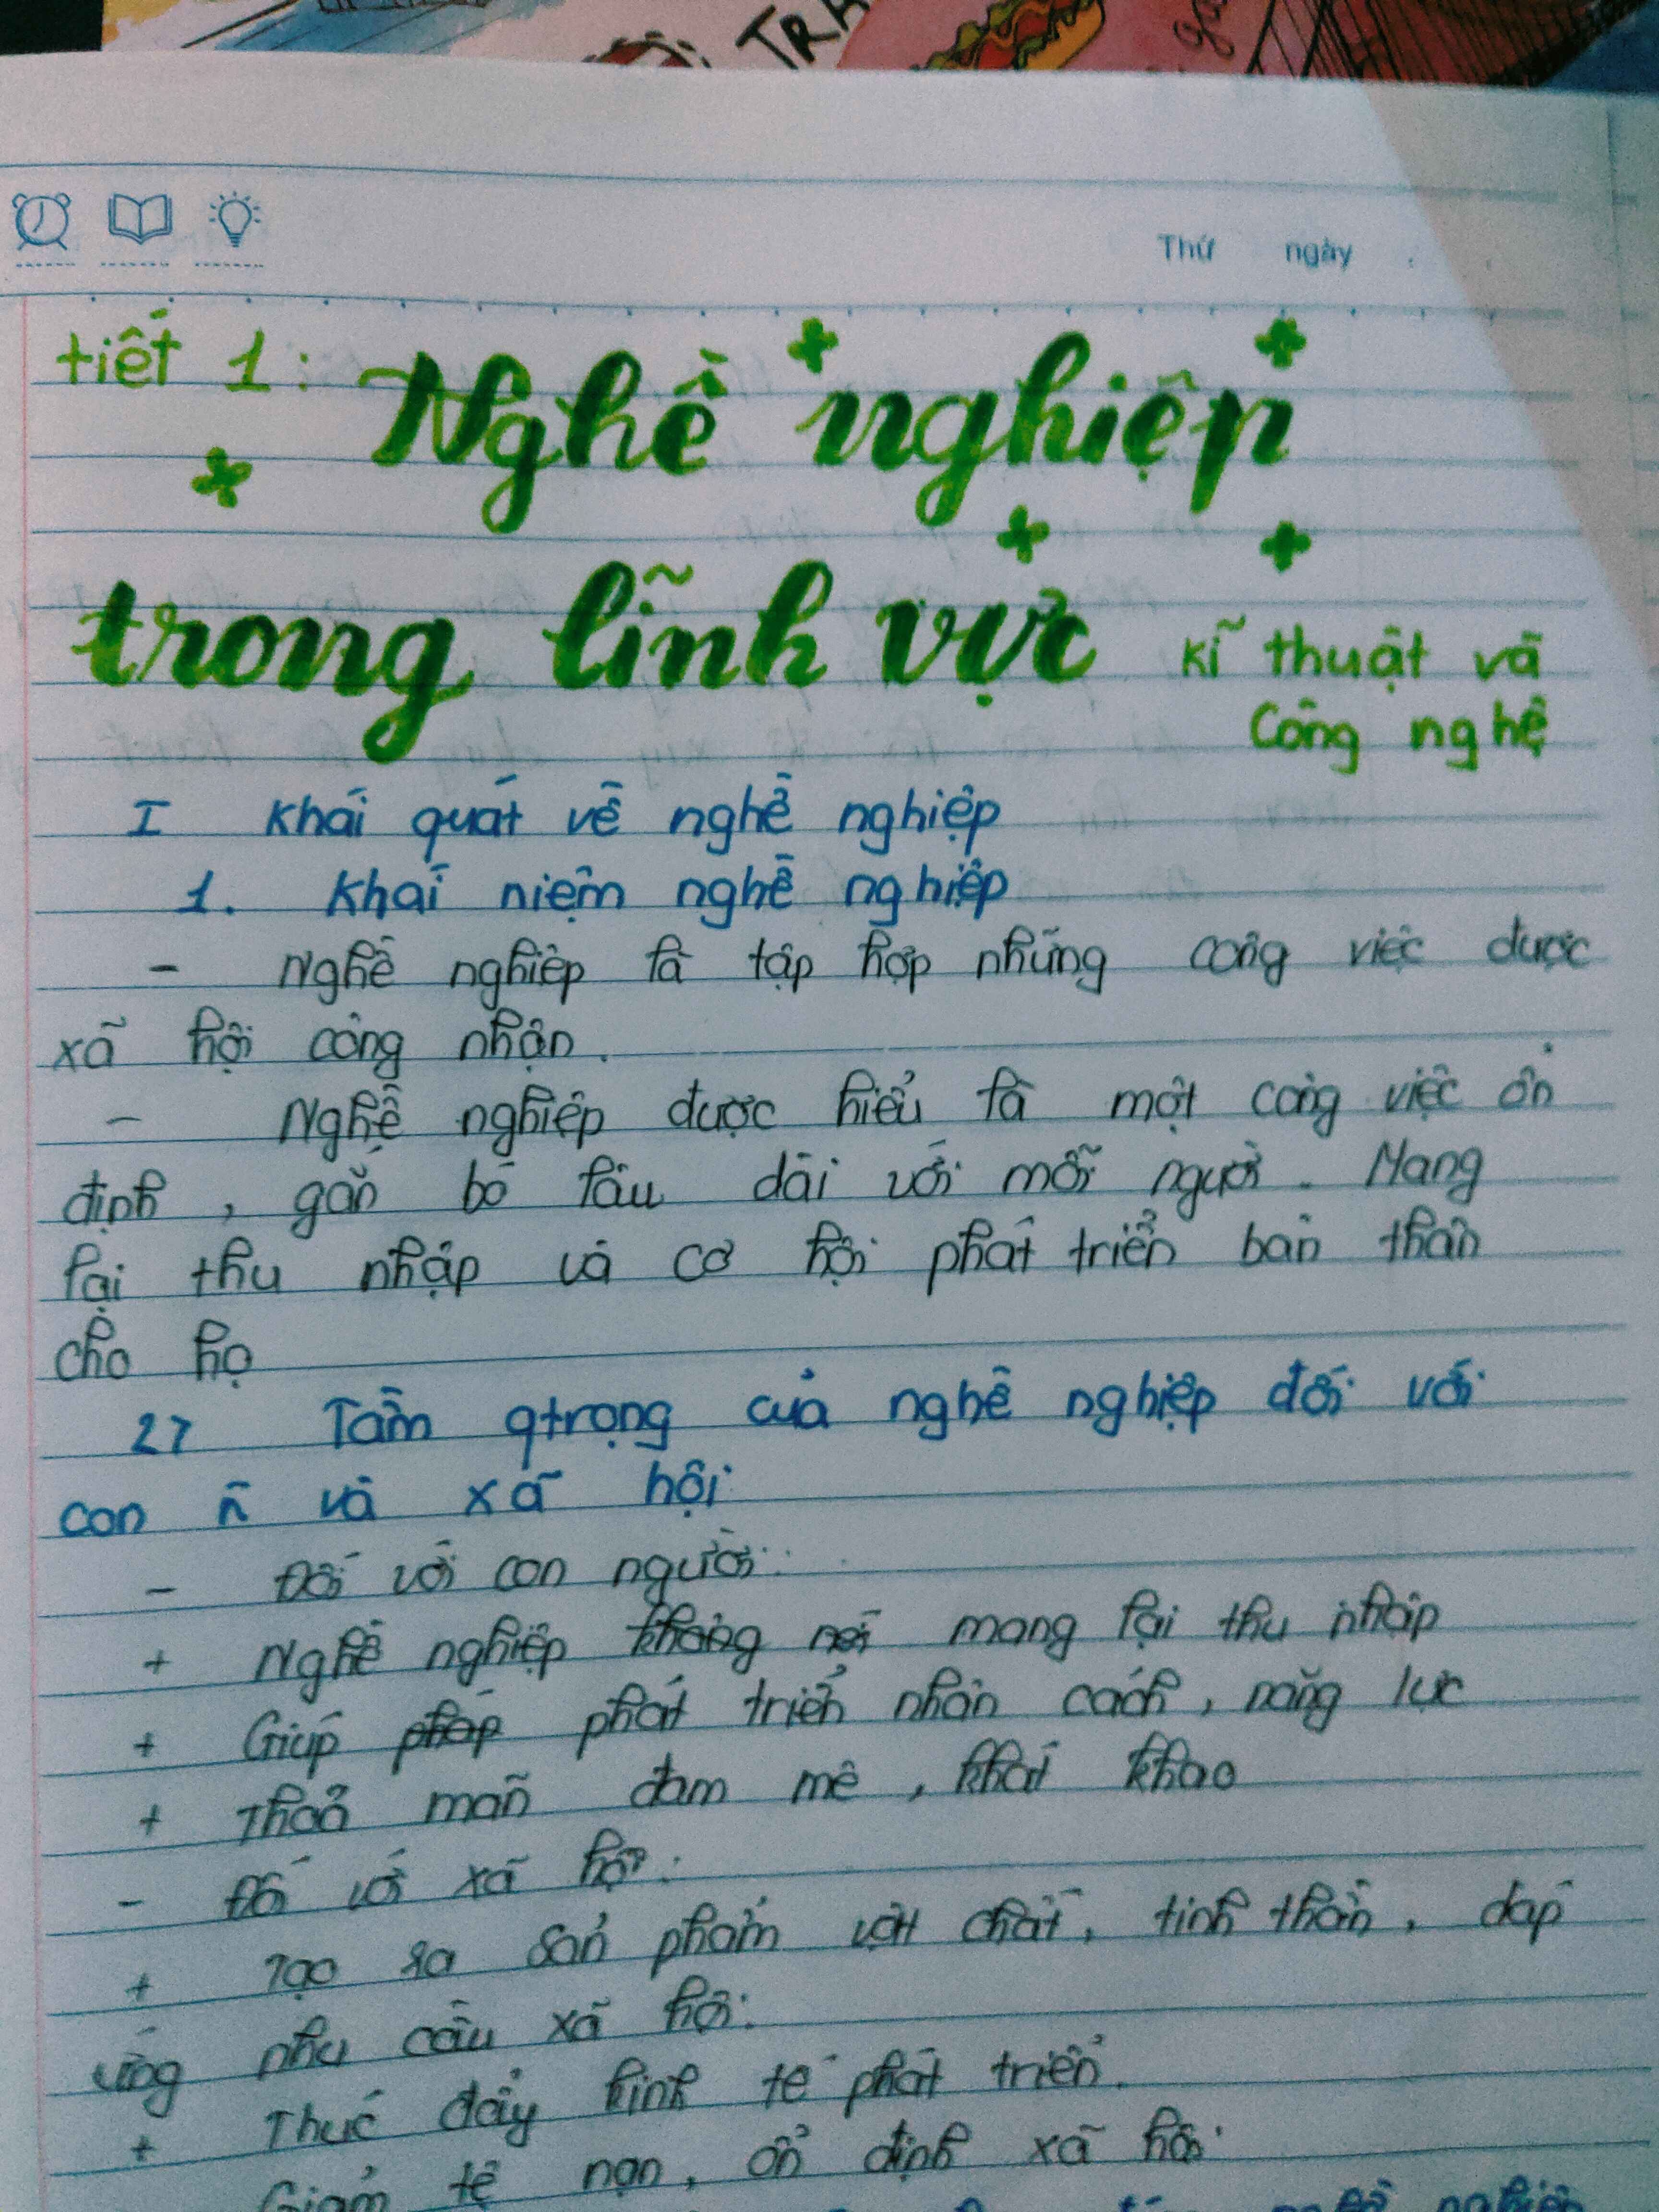 TRA
Thứ ngày
tiết 1: Nghề nghiệp
trong lĩnh vực kĩ thuật và
Công nghệ
I Khái quát về nghề nghiệp
1. Khái niệm nghề nghiệp
- Nghề nghiệp là tập hợp những công việc được
xã hội công nhận.
- Nghề nghiệp được hiểu là một công việc ổn
định, gắn bó lâu dài với mỗi người. Mang
lại thu nhập và cơ hội phát triển bản thân
cho họ
2> Tầm qtrọng của nghề nghiệp đối với
con ñ và xã hội
- Đối với con người:
+ Nghề nghiệp mang lại thu nhập
+ Giúp phát triển nhân cách, năng lực
+ Thoả mãn đam mê, khát khao
- Đối với xã hội:
+ Tạo ra sản phẩm vật chất, tinh thần, đáp
ứng nhu cầu xã hội.
+ Thúc đẩy kinh tế phát triển.
Giảm tệ nạn, ổn định xã hội
nghề nghiệp